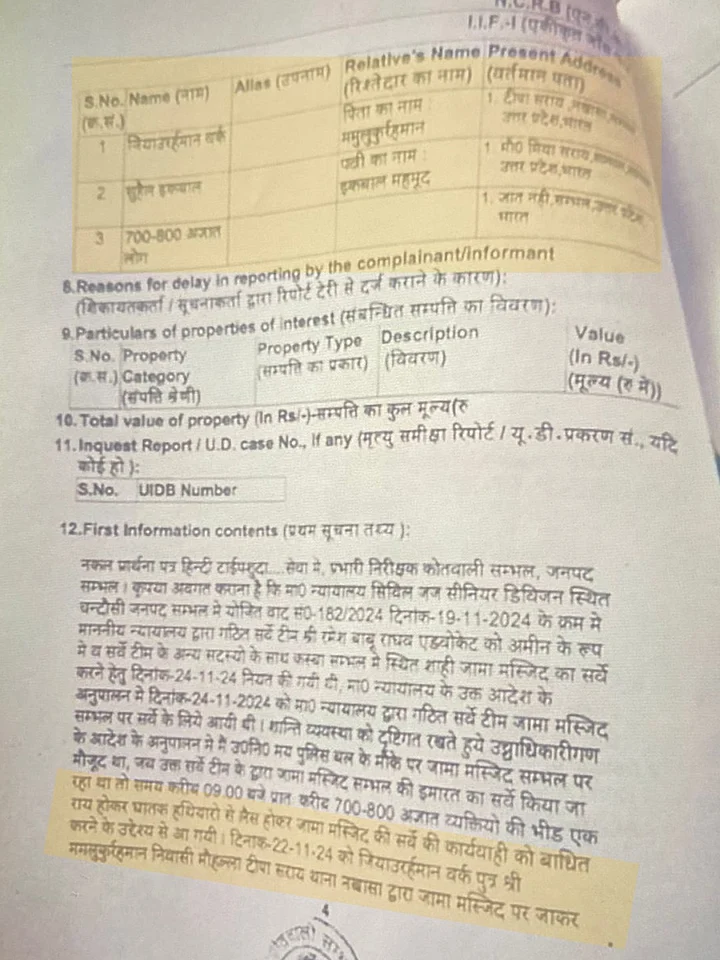 N.C.R.B (एन.सी.
I.I.F.-I (एकीकृत जाँच
S.No. Name (नाम) Alias (उपनाम) Relative's Name Present Address
(क्र.सं.) (रिश्तेदार का नाम) (वर्तमान पता)
1 जियाउर्रहमान वर्क पिता का नाम : ममुलुकुर्रहमान 1. टीपा सराय, उत्तर प्रदेश,भारत
2 सुहैल इकबाल पत्नी का नाम : इकबाल महमूद 1 मौ0 मिया सराय, उत्तर प्रदेश,भारत
3 700-800 अज्ञात लोग 1. ज्ञात नही,सम्भल,उत्तर प्रदेश भारत
8.Reasons for delay in reporting by the complainant/informant
(शिकायतकर्ता / सूचनाकर्ता द्वारा रिपोर्ट देरी से दर्ज कराने के कारण):
9.Particulars of properties of interest (संबन्धित सम्पति का विवरण):
S.No. Property Property Type Description Value
(क्र.सं.) Category (सम्पति का प्रकार) (विवरण) (In Rs/-)
(संपत्ति श्रेणी) (मूल्य (रु में))
10. Total value of property (In Rs/-)-सम्पति का कुल मूल्य(रु
11.Inquest Report / U.D. case No., if any (मृत्यु समीक्षा रिपोर्ट / यू.डी.प्रकरण सं., यदि
कोई हो ):
S.No. UIDB Number
12.First Information contents (प्रथम सूचना तथ्य ):
नकल प्रार्थना पत्र हिन्दी टाईपशुदा....सेवा मे, प्रभारी निरीक्षक कोतवाली सम्भल, जनपद
सम्भल। कृपया अवगत कराना है कि मा0 न्यायालय सिविल जज सीनियर डिविजन स्थित
चन्दौसी जनपद सम्भल मे योजित वाद सं0-182/2024 दिनांक-19-11-2024 के क्रम मे
माननीय न्यायालय द्वारा गठित सर्वे टीम श्री रमेश बाबू राघव एडवोकेट को अमीन के रूप
मे व सर्वे टीम के अन्य सदस्यो के साथ कस्बा सम्भल मे स्थित शाही जामा मस्जिद का सर्वे
करने हेतु दिनांक-24-11-24 नियत की गयी थी, मा0 न्यायालय के उक्त आदेश के
अनुपालन मे दिनांक-24-11-2024 को मा0 न्यायालय द्वारा गठित सर्वे टीम जामा मस्जिद
सम्भल पर सर्वे के लिये आयी थी। शान्ति व्यवस्था को दृष्टिगत रखते हुये उच्चाधिकारीगण
के आदेश के अनुपालन मे मै उ0नि0 मय पुलिस बल के मौके पर जामा मस्जिद सम्भल पर
मौजूद था, जब उक्त सर्वे टीम के द्वारा जामा मस्जिद सम्भल की इमारत का सर्वे किया जा
रहा था तो समय करीब 09.00 बजे प्रात: करीब 700-800 अज्ञात व्यक्तियो की भीड एक
राय होकर घातक हथियारो से लैस होकर जामा मस्जिद की सर्वे की कार्यवाही को बाधित
करने के उद्देश्य से आ गयी। दिनांक-22-11-24 को जियाउर्रहमान वर्क पुत्र श्री
ममलुकुर्रहमान निवासी मौहल्ला टीपा सराय थाना नखासा द्वारा जामा मस्जिद पर जाकर
4